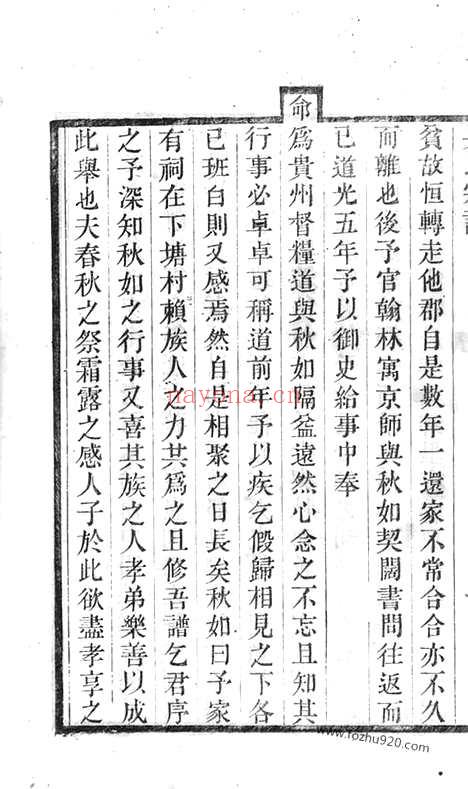 貧故恒轉走他郡自是數年一還家不常合合亦不久
而離也後予官翰林寓京師與秋如契闊書問往返而
已道光五年予以御史給事中奉
命爲貴州督糧道與秋如隔益遠然心念之不忘且知其
行事必卓卓可稱道前年予以疾乞假歸相見之下各
已班白則又感焉然自是相聚之日長矣秋如曰予家
有祠在下塘村賴族人之力共爲之且修吾譜乞君序
之予深知秋如之行事又喜其族之人孝弟樂善以成
此舉也夫春秋之祭霜露之感人子於此欲盡孝享之
nayona.cn
www.fozhu920.com